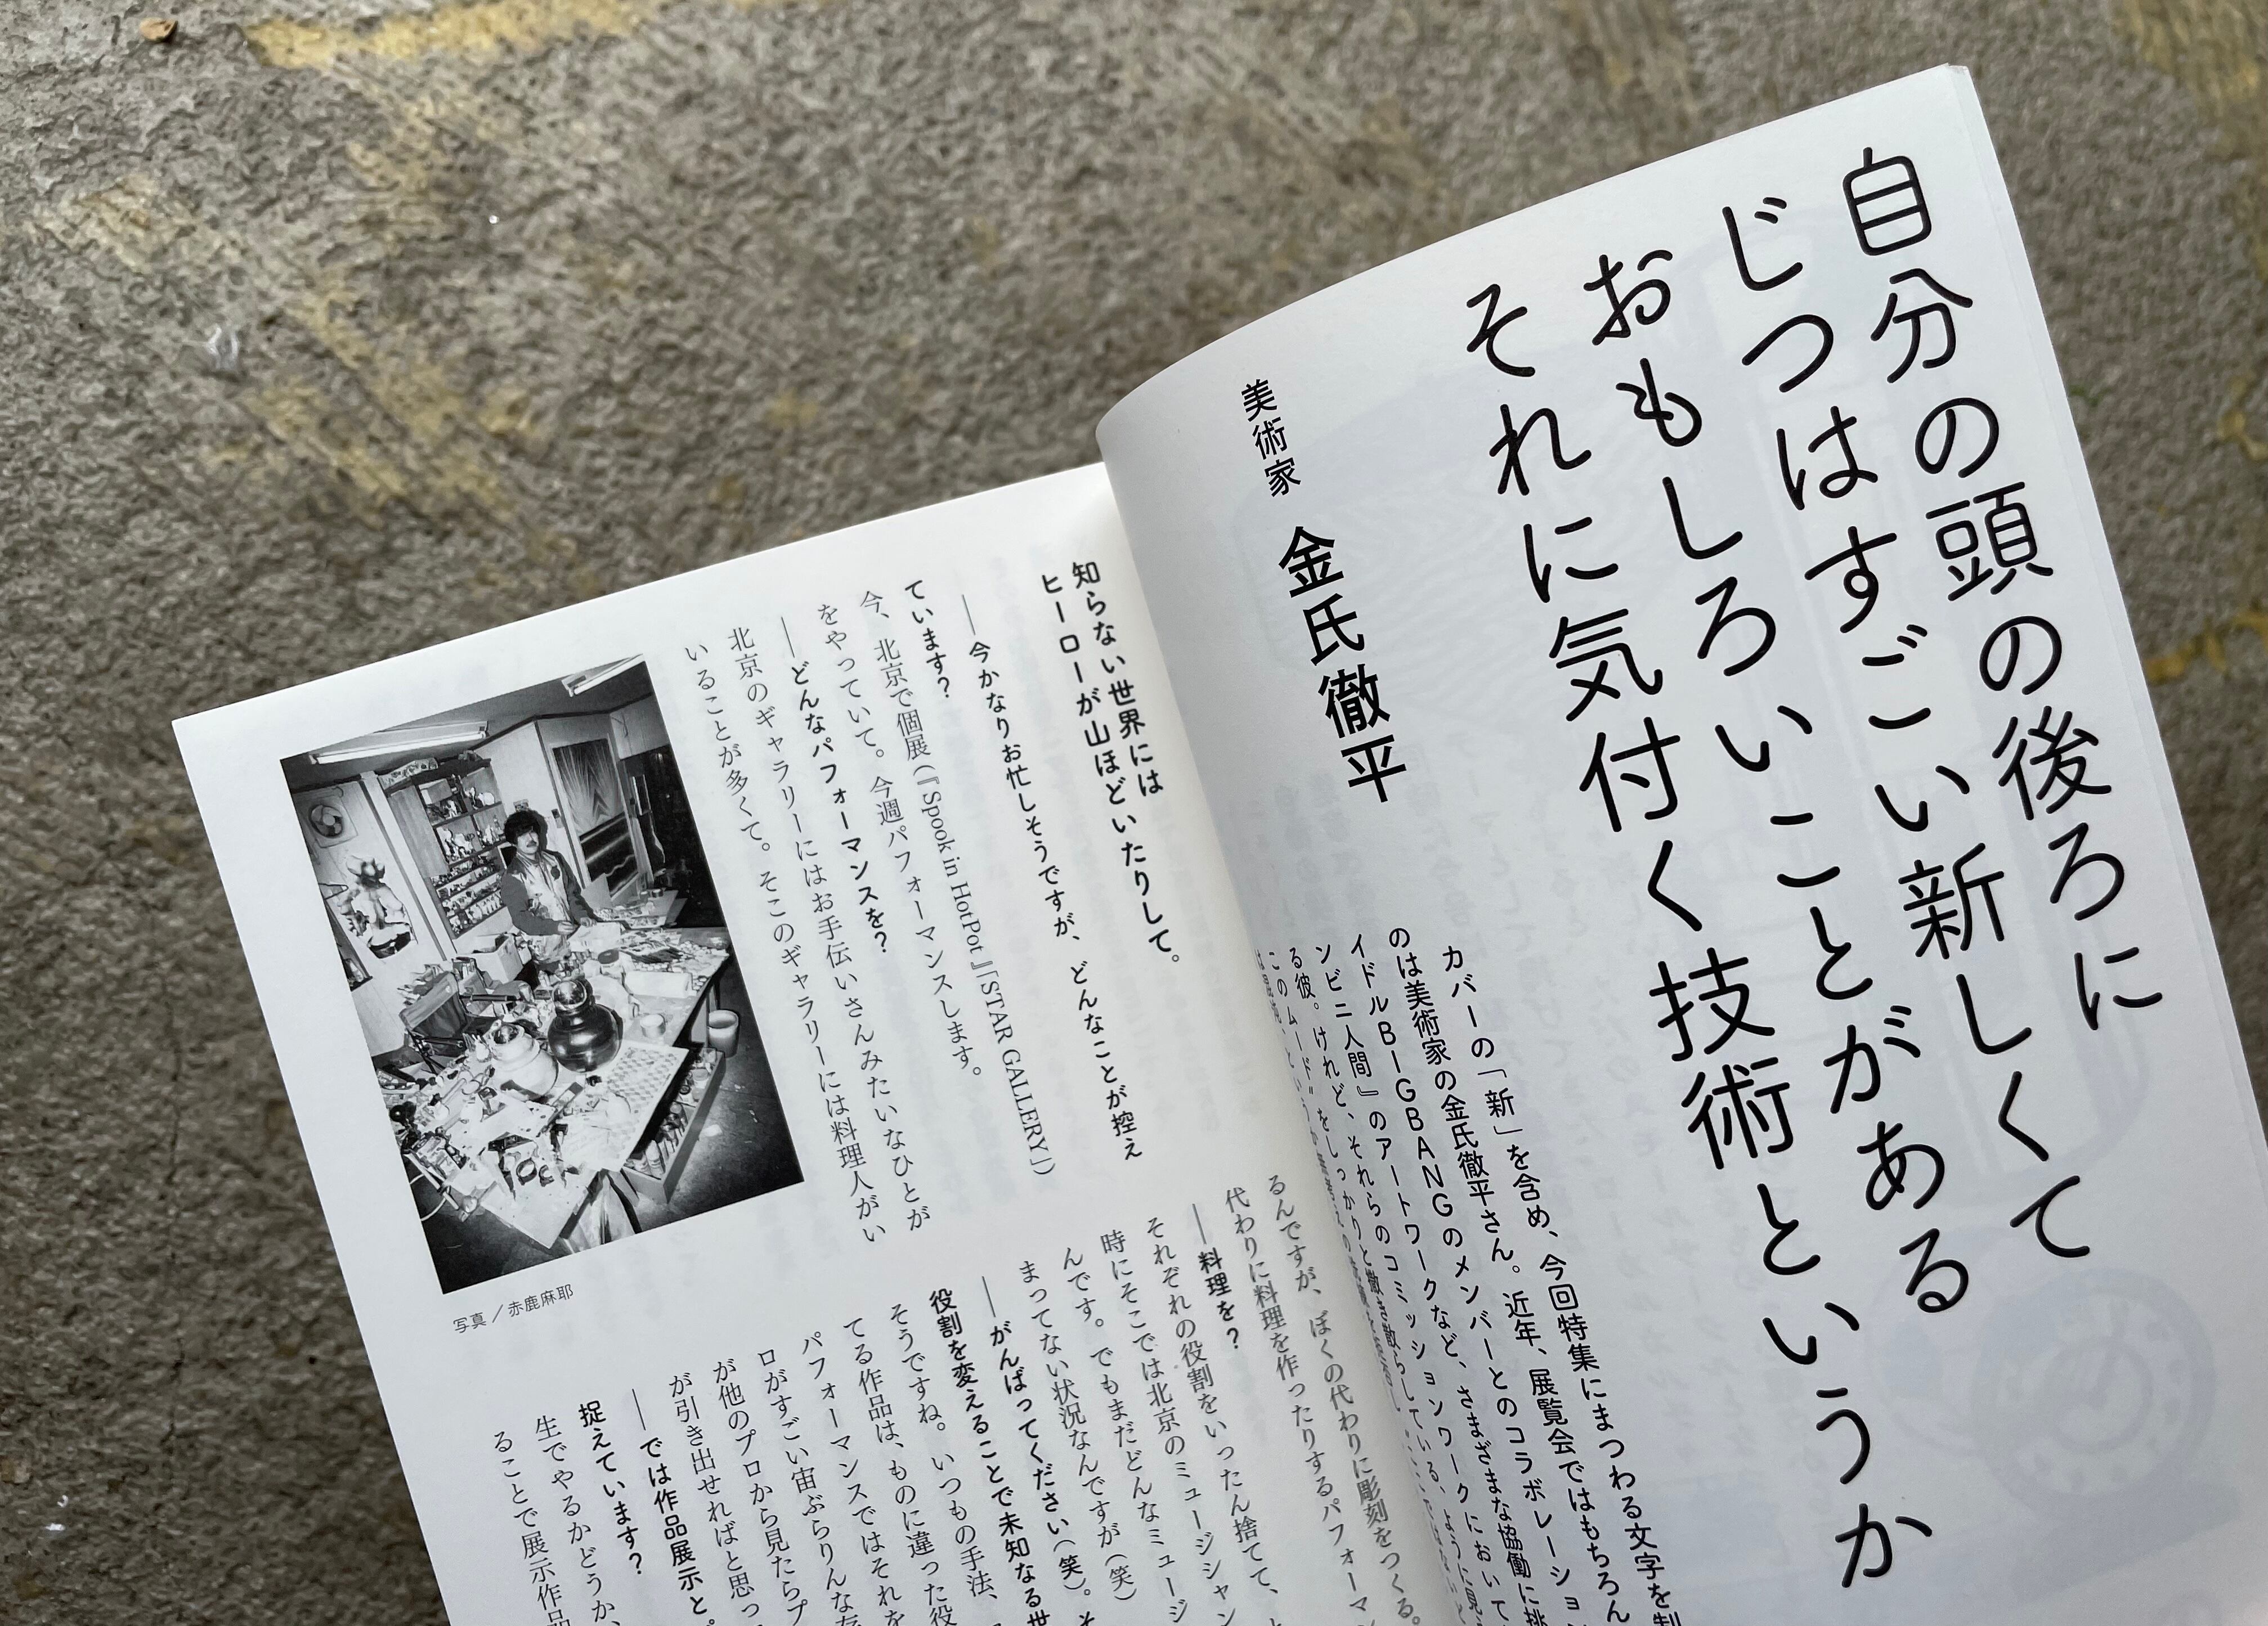 自分の頭の後ろに
じつはすごい新しくて
おもしろいことがある
それに気付く技術というか
美術家 金氏徹平
カバーの「新」を含め、今回特集にまつわる文字を制
のは美術家の金氏徹平さん。近年、展覧会ではもちろん
イドルBIGBANGのメンバーとのコラボレーション
ンビニ人間』のアートワークなど、さまざまな協働に挑
る彼。けれど、それらのコミッションワークにおいて
知らない世界には
ヒーローが山ほどいたりして。
――今かなりお忙しそうですが、どんなことが控え
ています?
今、北京で個展(『Spook in HotPot』『STAR GALLERY』)
をやっていて。今週パフォーマンスします。
――どんなパフォーマンスを?
北京のギャラリーにはお手伝いさんみたいなひとが
いることが多くて。そこのギャラリーには料理人がい
るんですが、ぼくの代わりに彫刻をつくる。
代わりに料理を作ったりするパフォーマン
――料理を?
それぞれの役割をいったん捨てて、
時にそこでは北京のミュージシャン
んです。でもまだどんなミュージ
まってない状況なんですが(笑)
――がんばってください(笑)。そ
役割を変えることで未知なる世
そうですね。いつもの手法、
てる作品は、ものに違った役
パフォーマンスではそれを
ロがすごい宙ぶらりんな存
が他のプロから見たらプ
が引き出せればと思っ
――では作品展示と。
捉えています?
生でやるかどうか、
ることで展示作品
写真／赤鹿麻耶